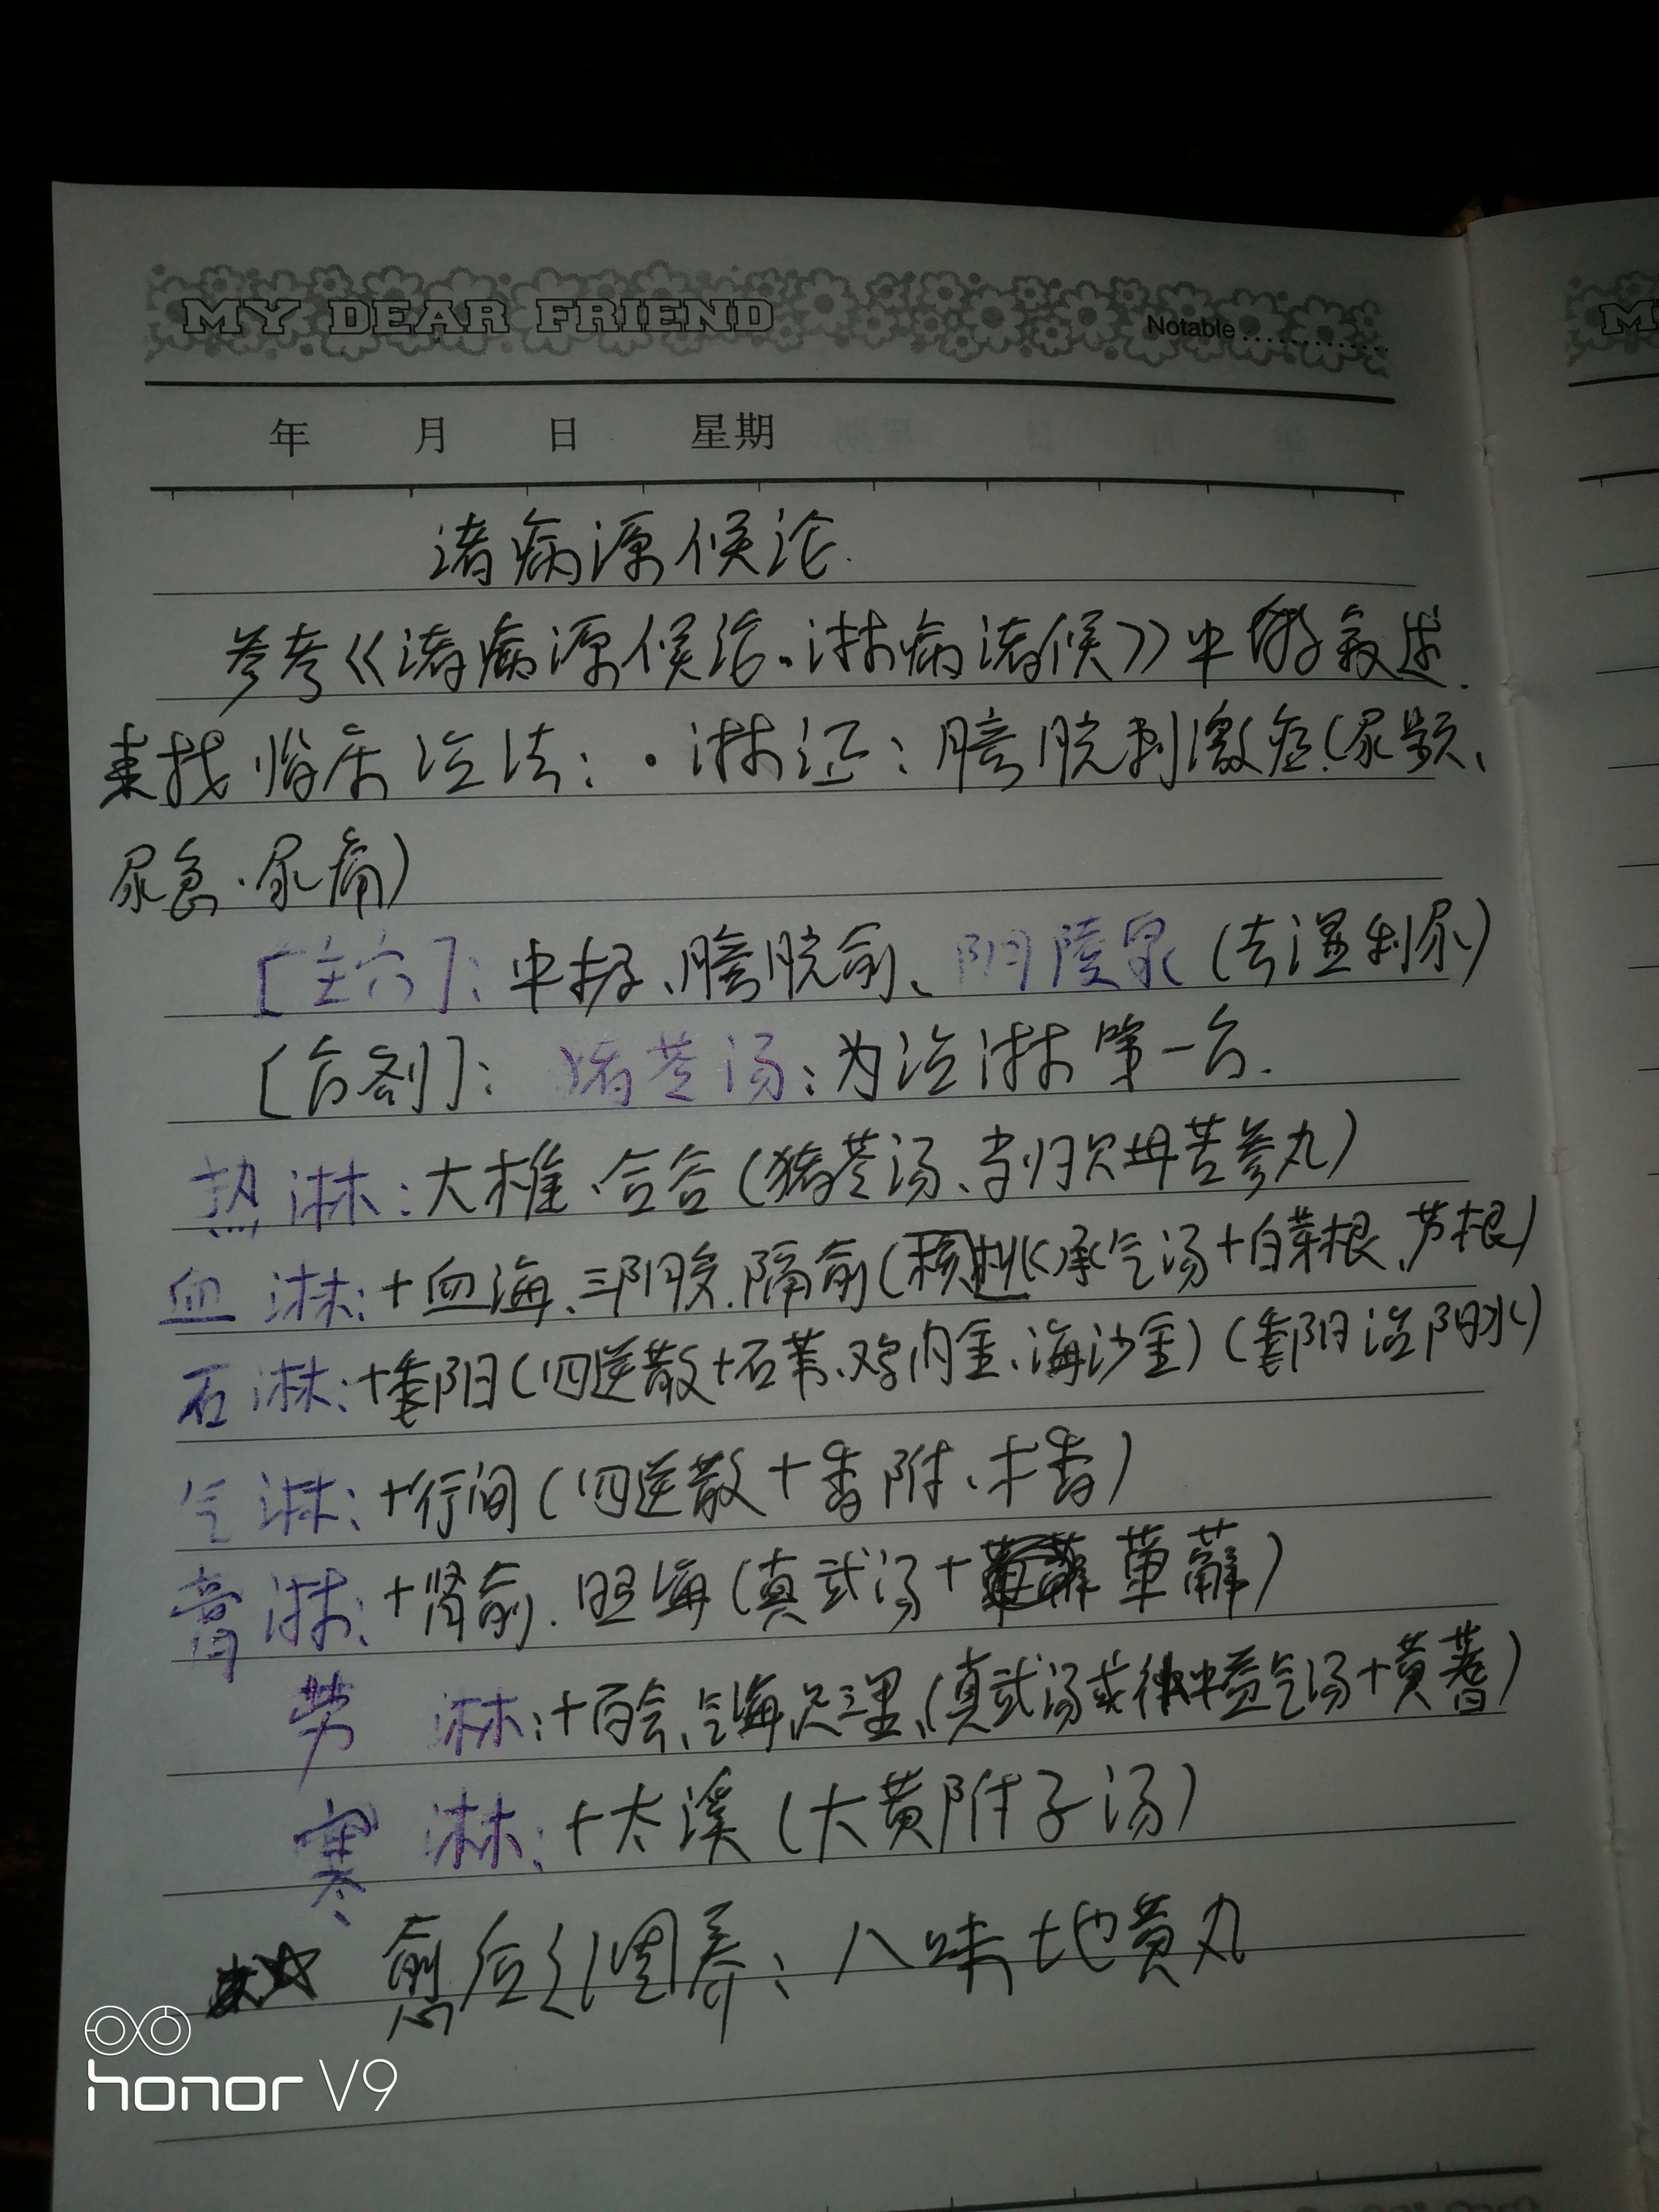 MY DEAR FRIEND
Notable
年 月 日 星期
诸病源候论.
参考《诸病源候论·淋病诸候》中的叙述.
来找临床治法:·淋证:膀胱刺激症(尿频、
尿急·尿痛)
[主穴]:中极、膀胱俞、阴陵泉(去湿利尿)
[方剂]: 猪苓汤:为治淋第一方.
热淋:大椎、合谷(猪苓汤、当归贝母苦参丸)
血淋:+血海、三阴交.隔俞(桃核承气汤+白茅根、芦根)
石淋:+委阳(四逆散+石苇、鸡内金、海沙金)(委阳治阳水)
气淋:+行间(四逆散+香附、木香)
膏淋:+肾俞.照海(真武汤+萆薢)
劳淋:+百会、气海、足三里、(真武汤或补中益气汤+黄蓍)
寒淋:+太溪(大黄附子汤)
愈后调养:八味地黄丸
honor V9